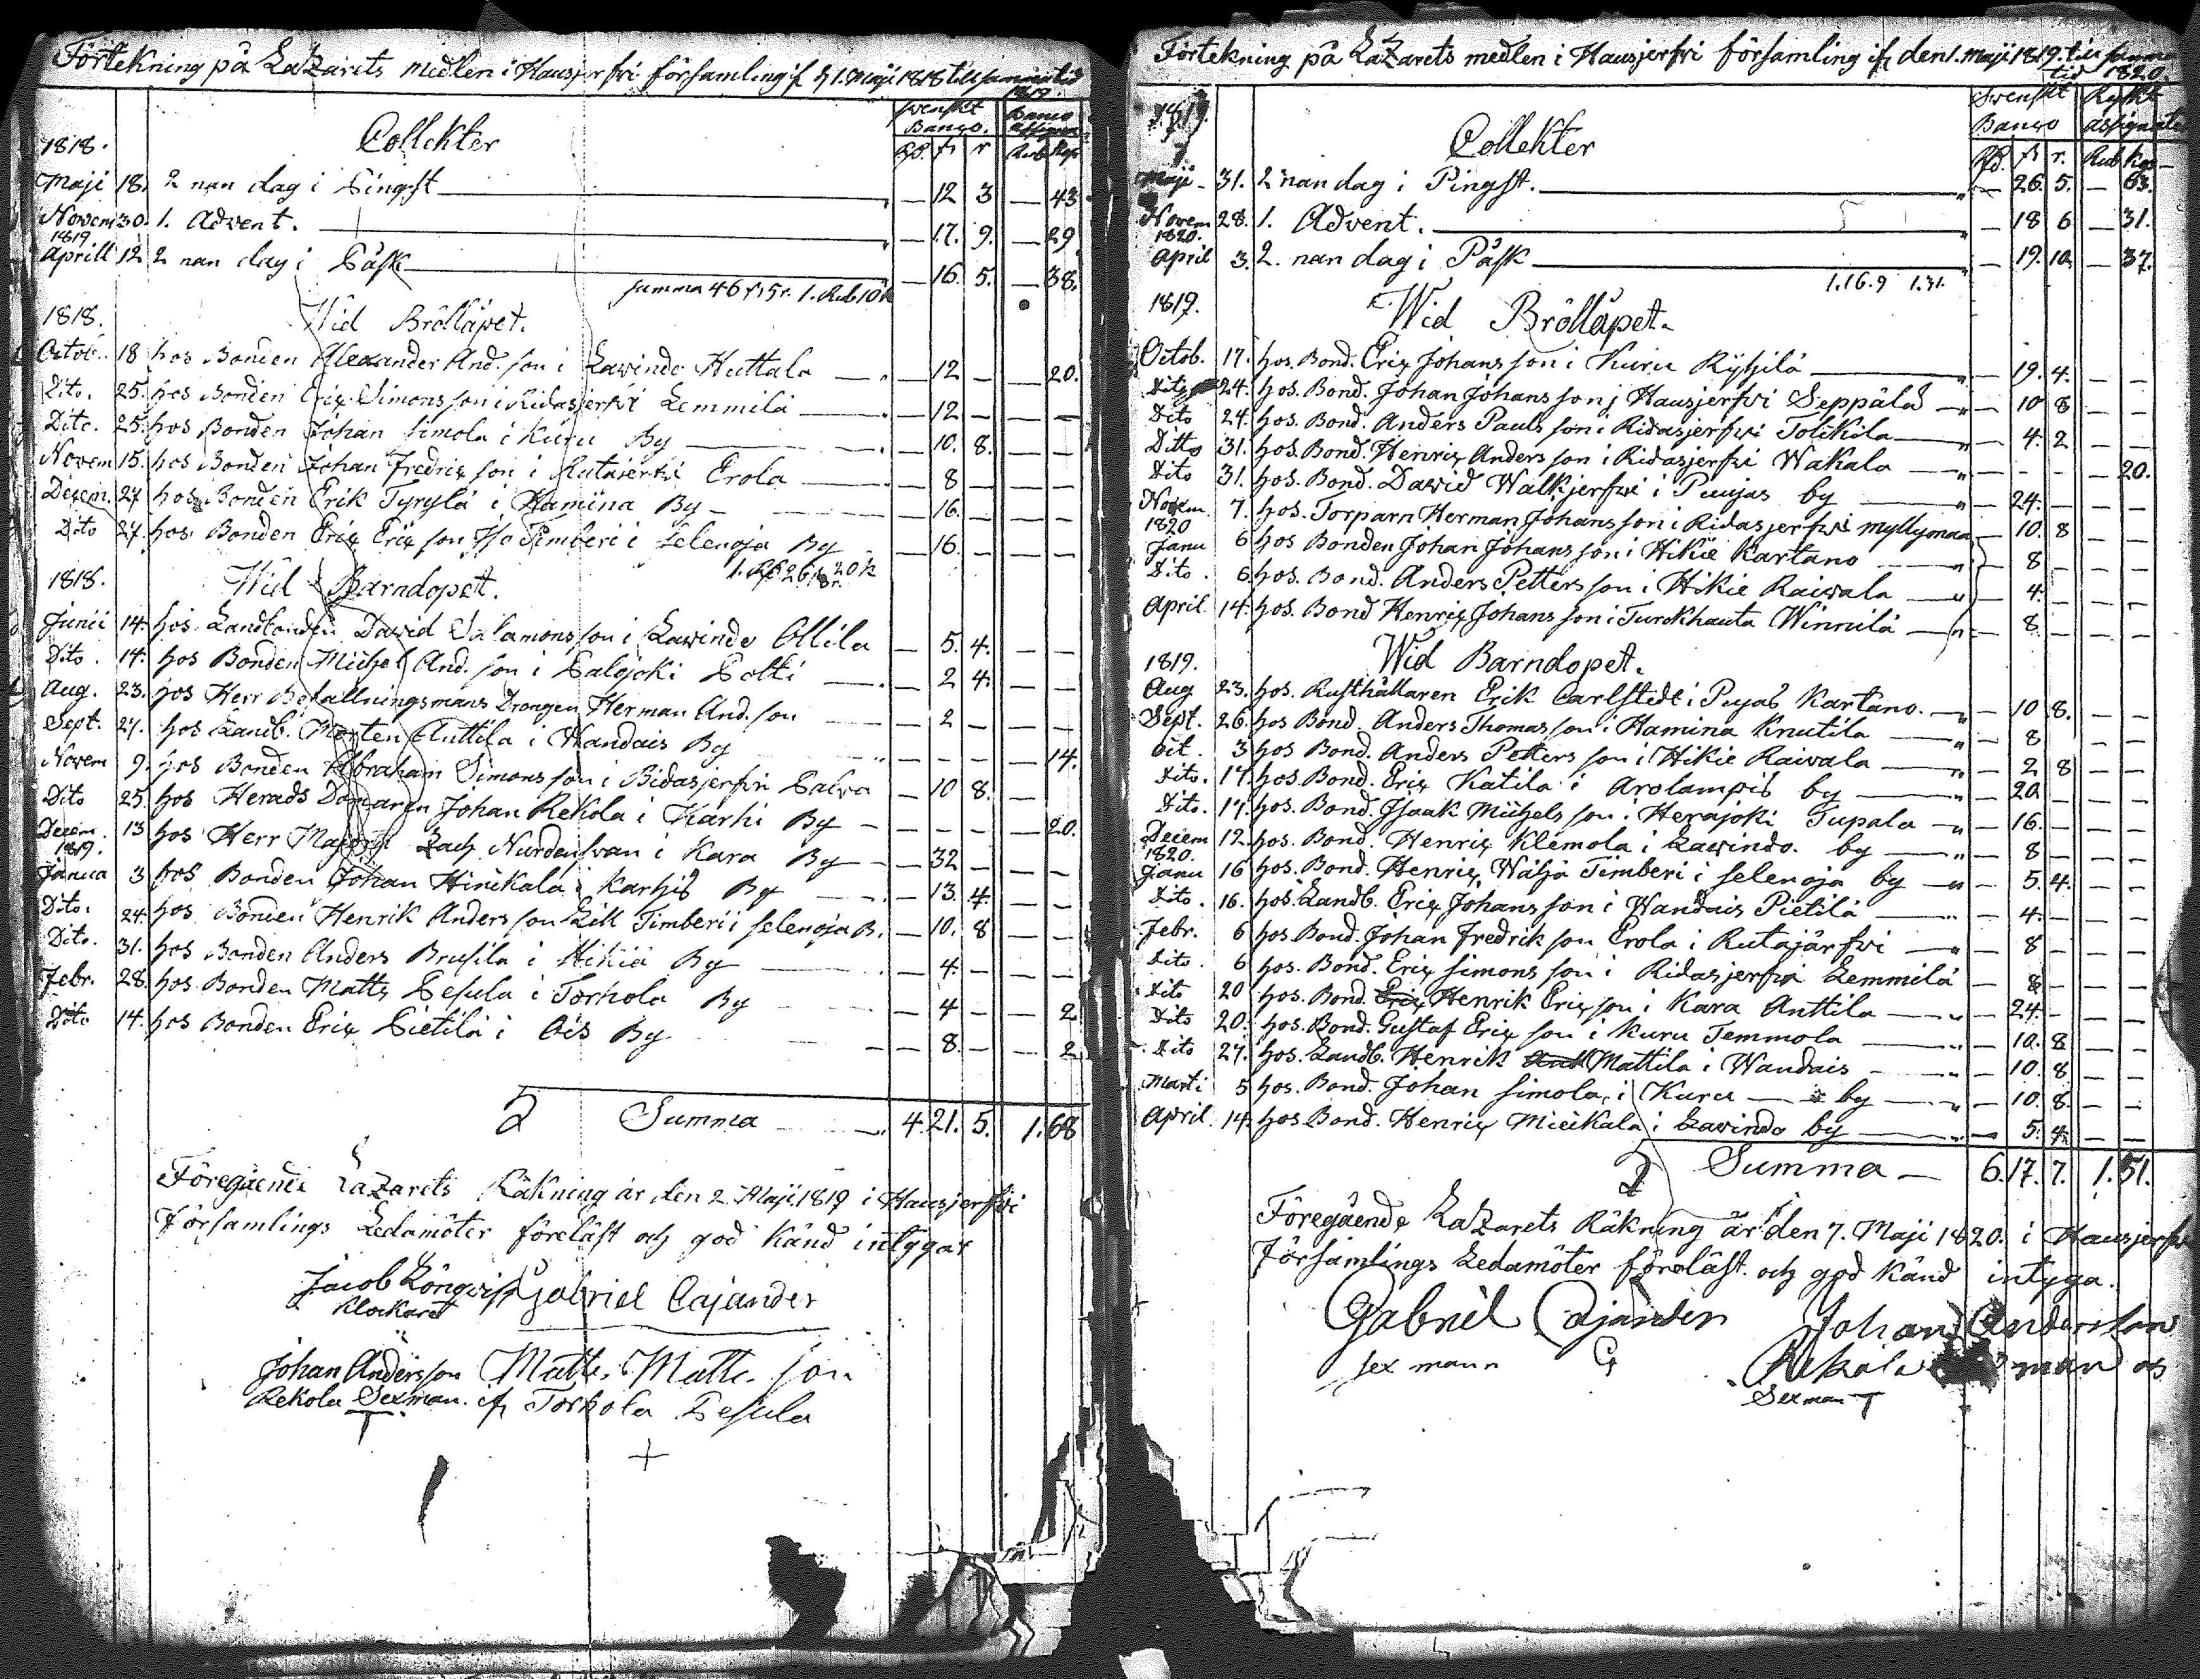 Förtekning på LaZarets medlen i Hausjerfvi församling if d 1. Maji 1818 till samma tid
1819.
Swenskt Banco. Banco Assignat.
1818. Collekter Rd. s r Rub Kop
Maji 18. 2 nan dag i Pingst — 12 3 — 43
Novem 30. 1. Advent. — 17. 9. — 29
1819
Aprill 12 2 nan dag i Påsk — 16. 5. — 38.
summa 46 s 5 r. 1. Rub 10 k
1818. Wid Brölläpet.
Octob. 18 hos Bonden Alexander And. son i Lawindo Huttala — 12 — — 20.
Dito. 25. hos Bonden Eric Simons son i Ridasjerfvi Lemmilä — 12 — — —
Dito. 25. hos Bonden Johan Simola i Kuru By — 10. 8. — —
Novem 15. hos Bonden Johan Fredric son i Rutajerfvi Erola — 8 — — —
Decem. 27 hos Bonden Erik Tyrylä i Hamina By — 16. — — —
Dito 27. hos Bonden Eric Eric son Iso Timberi i Selenoja By — 16 — — —
1. Rd 26 s 8 r. 20 k
1818. Wid Barndopet.
Junii 14. hos Landbonden David Salamons son i Lawindo Ollila — 5. 4. — —
Dito. 14. hos Bonden Michel And. son i Salojoki Solti — 2 4. — —
Aug. 23. hos Herr Befallningsmans Drangen Herman And. son — 2 — — —
Sept. 27. hos Landb. Morten Anttila i Wandais By — — — — 14.
Novem 9. hos Bonden Abraham Simons son i Ridasjerfvi Salva — 10 8. —
Dito 25. hos Herads Domaren Johan Rekola i Karhi By — — — — 20.
Decem. 13 hos Herr Majors Zach Nurdensvan i Kara By — 32 — — —
1819.
Janua 3 hos Bonden Johan Hinikala i Karhis By — 13. 4. — —
Dito. 24. hos Bonden Henrik Anders son Lill Timberi i Selenoja B. — 10. 8 — —
Dito. 31. hos Bonden Anders Brusila i Hikiä By — 4. — — —
Febr. 28. hos Bonden Matts Pesula i Torhola By — 4 — — 2
Dito 14. hos Bonden Eric Pietilä i Ois By — 8. — — 2
Summa 4. 21. 5. 1. 68
Föregående LaZarets Räkning är den 2. Maji 1819 i Hausjerfvi
församlings Ledamöter föreläst och god känd intygar
Jacob Lönqvist Gabriel Cajander
Klockaret
Johan Andersson Matts Matts son
Rekola Sexman. if Torhola Pesula
Förtekning på LaZarets medlen i Hausjerfvi församling if den 1. Maji 1819. till samma
tid 1820.
Swenskt Banco Ryskt Assignater
1819. Collekter Rd. s r. Rub Kop
Maji 31. 2 nan dag i Pingst. — 26. 5. — 63.
Novem 28. 1. Advent. — 18 6 — 31.
1820.
April 3. 2. nan dag i Påsk — 19. 10. — 37.
1.16.9 1.31.
1819. Wid Brölläpet.
Octob. 17. hos. Bond. Eric Johans son i Kuru Ryhilä — 19. 4. — —
Dito 24. hos. Bond. Johan Johans son i Hausjerfvi Seppälä — 10 8 — —
Dito 24. hos. Bond. Anders Pauls son i Ridasjerfvi Tolkkila — 4. 2 — —
Ditto 31. hos. Bond. Henric Anders son i Ridasjerfvi Wakala — — — — 20.
Dito 31. hos. Bond. David Walkjerfvi i Punjas by — 24. — — —
Novem. 7. hos. Torparn Herman Johans son i Ridasjerfvi myllymaa — 10. 8 — —
1820
Janu 6 hos Bonden Johan Johans son i Hikie Kartano — 8 — — —
Dito. 6. hos. Bond. Anders Petters son i Hikie Raiwala — 4. — — —
April 14. hos. Bond Henric Johans son i Turckhauta Winnilä — 8 — — —
1819. Wid Barndopet.
Aug 23. hos. Rusthållaren Erik Carlstedt i Pujas Kartano. — 10 8. — —
Sept. 26. hos Bond. Anders Thomas son i Hamina Knutila — 8 — —
Oct. 3 hos Bond. Anders Petters son i Hikie Raiwala — 2 8 — —
Dito. 17. hos. Bond. Eric Katila i Arolampis by — 20. — — —
Dito. 17. hos. Bond. Isaak Michels son i Herajoki Tupala — 16. — — —
Decem 12. hos. Bond. Henric Klemola i Lawindo. by — 8 — — —
1820.
Janu 16 hos. Bond. Henric Wähä Timberi i selenoja by — 5. 4. — —
Dito. 16. hos. Landb. Eric Johans son i Wandais Pietilä — 4. — — —
Febr. 6 hos. Bond. Johan Fredrik son Erola i Rutajärfvi — 8 — — —
Dito. 6 hos. Bond. Eric Simons son i Ridasjerfvi Lemmilä — 8 — — —
Dito 20 hos. Bond. Eric Henrik Eric son i Kara Anttila — 24. — — —
Dito 20. hos. Bond. Gustaf Eric son i Kuru Temmola — 10. 8 — —
Dito 27. hos. Landb. Henrik Mattila i Wandais — 10. 8 — —
Marti 5 hos. Bond. Johan Simola, i Kuru by — 10. 8. — —
April. 14. hos Bond. Henric Mickala i Lawindo by — 5. 4. — —
Summa — 6. 17. 7. 1. 51.
Föregående LaZarets Räkning är den 7. Maji 1820. i Hausjerfvi
församlings Ledamöter föreläst och god känd intyga.
Gabriel Cajander Johan Andersson
sex mann Rekola man
Sexman